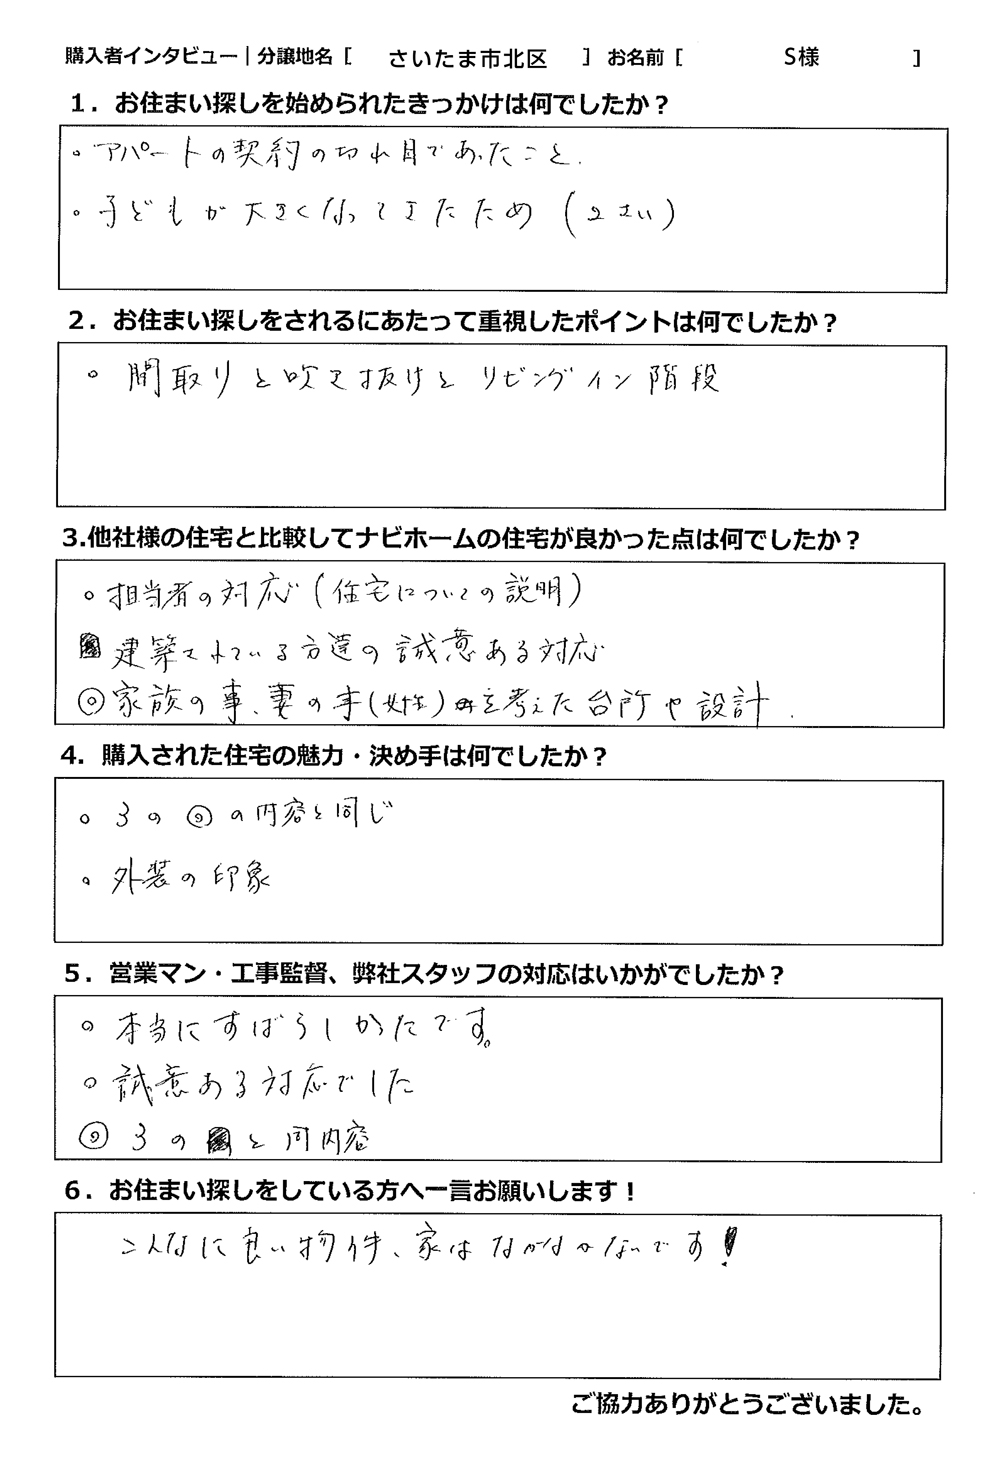 購入者インタビュー｜分譲地名［ さいたま市北区 ］お名前［ S様 ］
１．お住まい探しを始められたきっかけは何でしたか？
。アパートの契約の切れ目であったこと．
。子どもが大きくなってきたため（２さい）
２．お住まい探しをされるにあたって重視したポイントは何でしたか？
。間取りと吹き抜けとリビングイン階段
３.他社様の住宅と比較してナビホームの住宅が良かった点は何でしたか？
。担当者の対応（住宅についての説明）
建築されている方達の誠意ある対応
◎家族の事、妻の事（女性）を考えた台所や設計．
４．購入された住宅の魅力・決め手は何でしたか？
。３の◎の内容と同じ
。外装の印象
５．営業マン・工事監督、弊社スタッフの対応はいかがでしたか？
。本当にすばらしかったです。
。誠意ある対応でした
◎３の と同内容
６．お住まい探しをしている方へ一言お願いします！
こんなに良い物件、家はなかなかないです！
ご協力ありがとうございました。